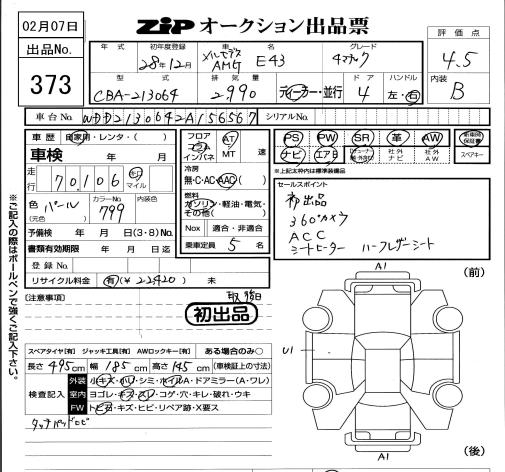 02月07日
ZIP オークション出品票
評価点
4.5
出品No.
373
年式 初年度登録 車名 グレード
28年12月 メルセデス AMG E43 4マチック
型式 排気量 ドア ハンドル
CBA-213064 2990 ディーラー・並行 4 左・右
内装
B
車台No. WDD2130642A156567 シリアルNo.
車歴 自家用・レンタ・( )
車検 年 月
走行 70,106 キロ マイル
色 パール (元色)
カラーNo. 799
内装色
予備検 年 月 日(3・8)No.
書類有効期限 年 月 日迄
登録No.
リサイクル料金 有(¥22420) 未
フロア コラム インパネ
AT MT 速
冷房
無・C・AC・AAC( )
燃料
ガソリン・軽油・電気・その他( )
Nox 適合・非適合
乗車定員 5 名
PS PW SR 革 AW 新車時保証書
ナビ エアB 社外ナビ 社外AW スペアキー
※上記太枠内は標準装備品
セールスポイント
初出品
360°カメラ
ACC
シートヒーター ハーフレザーシート
※ご記入の際はボールペンで強くご記入下さい。
(注意事項)
初出品
スペアタイヤ[有] ジャッキ工具[有] AWロックキー[有] ある場合のみ○
長さ 495cm 幅 185cm 高さ 145cm (車検証上の寸法)
検査記入
外装 小キズ・小ヘコ・シミ・ホイルA・ドアミラー(A・ワレ)
室内 ヨゴレ・キズ・スレ・コゲ・穴・キレ・破れ・ウキ
FW トビ石・キズ・ヒビ・リペア跡・X要ス
タッチパッドロビ
(前)
A1
U1
A1
(後)